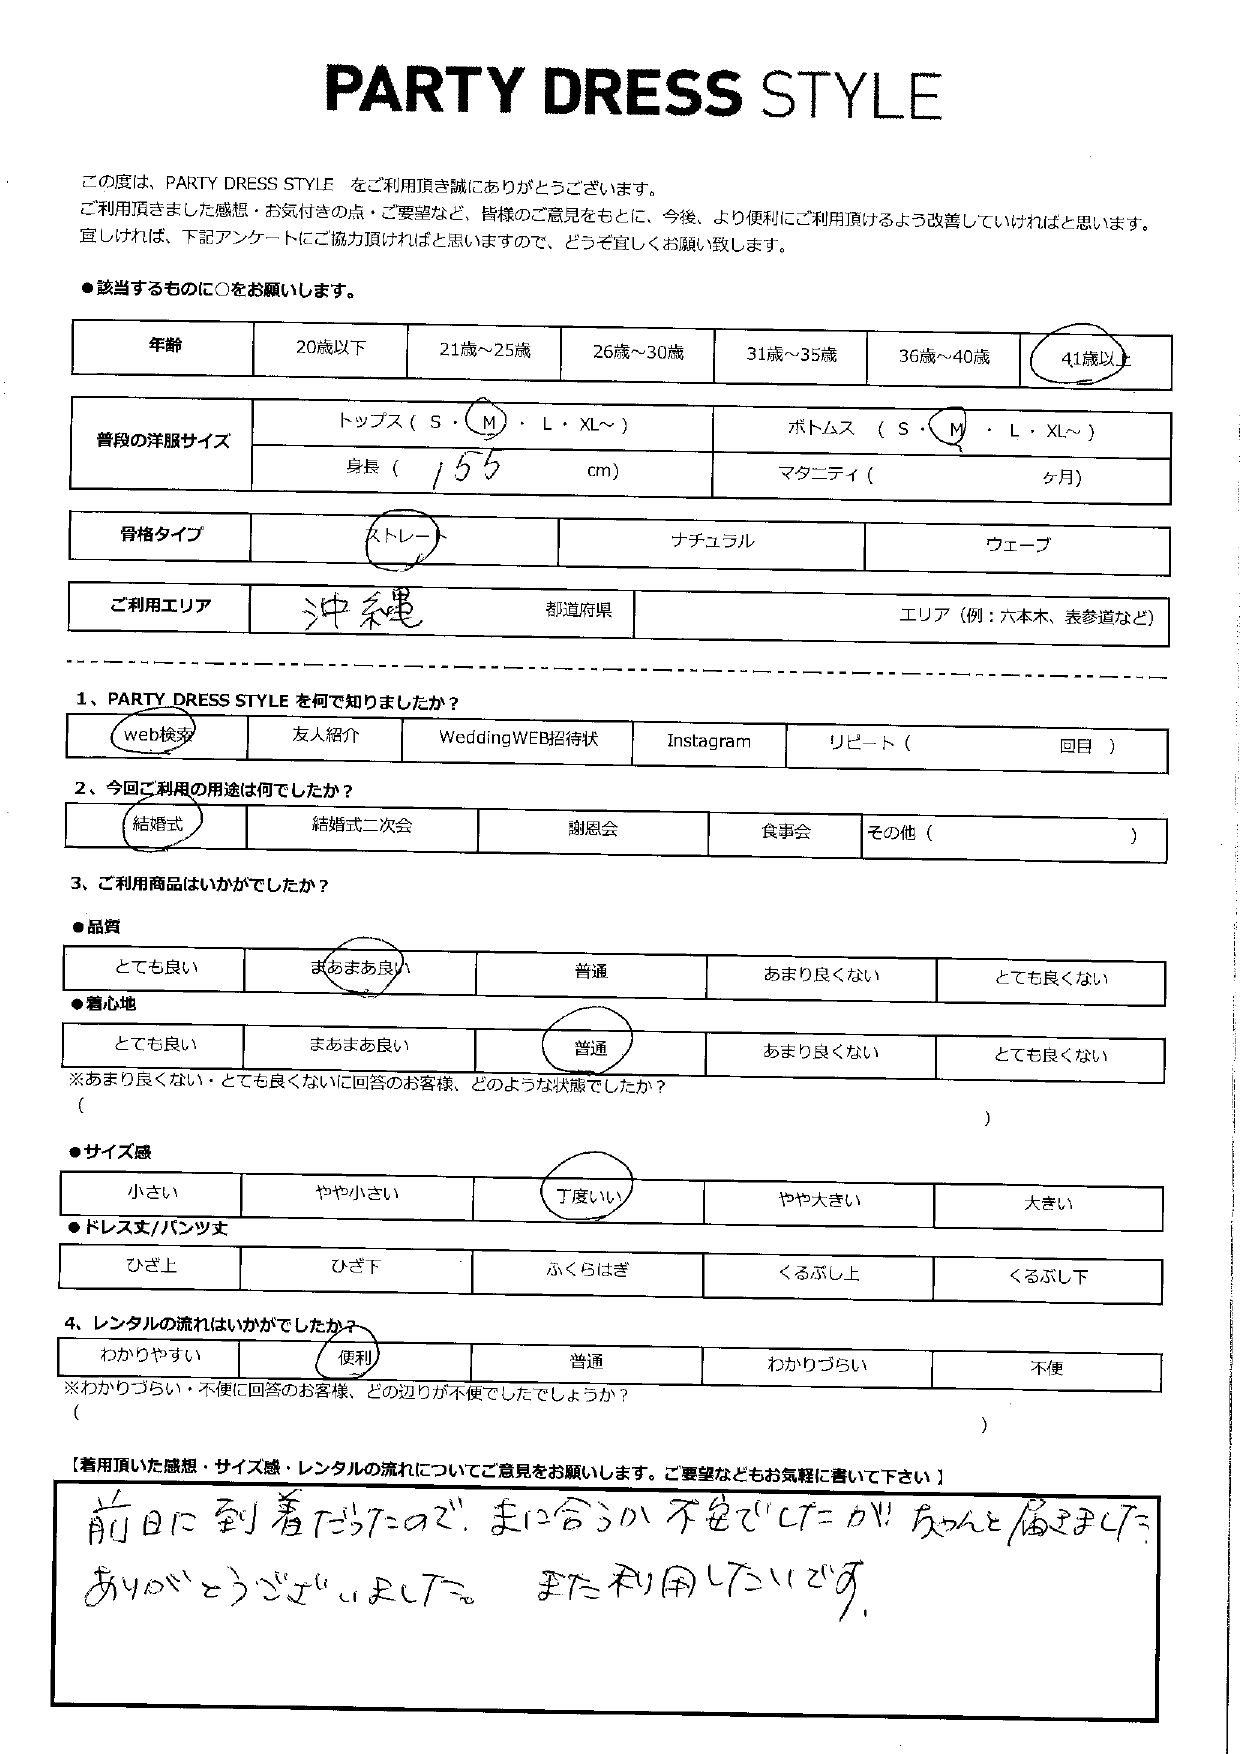 PARTY DRESS STYLE
この度は、PARTY DRESS STYLE をご利用頂き誠にありがとうございます。
ご利用頂きました感想・お気付きの点・ご要望など、皆様のご意見をもとに、今後、より便利にご利用頂けるよう改善していければと思います。
宜しければ、下記アンケートにご協力頂ければと思いますので、どうぞ宜しくお願い致します。
●該当するものに○をお願いします。
年齢 20歳以下 21歳～25歳 26歳～30歳 31歳～35歳 36歳～40歳 41歳以上
普段の洋服サイズ トップス ( S ・ M ・ L ・ XL～ ) ボトムス ( S ・ M ・ L ・ XL～ )
身長 ( 155 cm) マタニティ ( ヶ月)
骨格タイプ ストレート ナチュラル ウェーブ
ご利用エリア 沖縄 都道府県 エリア（例：六本木、表参道など）
1、PARTY DRESS STYLE を何で知りましたか？
web検索 友人紹介 WeddingWEB招待状 Instagram リピート ( 回目 )
2、今回ご利用の用途は何でしたか？
結婚式 結婚式二次会 謝恩会 食事会 その他 ( )
3、ご利用商品はいかがでしたか？
●品質
とても良い まあまあ良い 普通 あまり良くない とても良くない
●着心地
とても良い まあまあ良い 普通 あまり良くない とても良くない
※あまり良くない・とても良くないに回答のお客様、どのような状態でしたか？
( )
●サイズ感
小さい やや小さい 丁度いい やや大きい 大きい
●ドレス丈/パンツ丈
ひざ上 ひざ下 ふくらはぎ くるぶし上 くるぶし下
4、レンタルの流れはいかがでしたか？
わかりやすい 便利 普通 わかりづらい 不便
※わかりづらい・不便に回答のお客様、どの辺りが不便でしたでしょうか？
( )
【着用頂いた感想・サイズ感・レンタルの流れについてご意見をお願いします。ご要望などもお気軽に書いて下さい】
前日に到着だったので、まに合うか不安でしたが!! ちゃんと届きました
ありがとうございました。 また利用したいです.